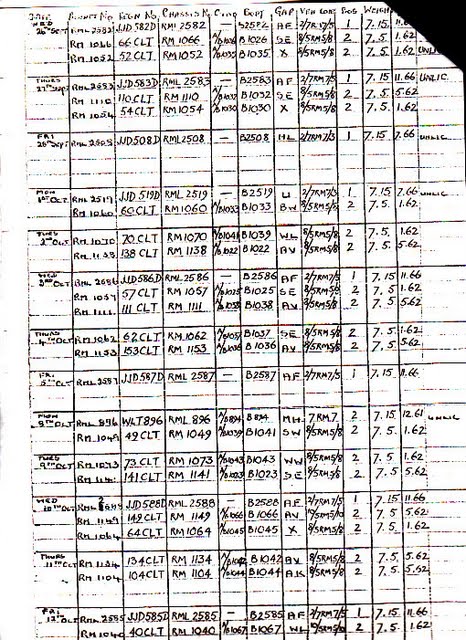 DATE BONNET NO REGN NO. CHASSIS NO. C/NO BODY GAR. VEH CODE BOS. WEIGHT
WED 26th SEPT RML 2582 JJD 582D RML 2582 — B2582 AF 2/7RM7/5 1 7.15 11.66
RM 1066 66 CLT RM 1066 B1026 SE 8/5RM5/8 2 7.5 1.62
RM 1052 52 CLT RM 1052 B1035 X 8/5RM5/8 2 7.5 1.62 UNLIC
THURS 27th SEPT RML 2583 JJD 583D RML 2583 — B2583 AF 2/7RM7/5 1 7.15 11.66 UNLIC.
RM 1110 110 CLT RM 1110 B1032 SE 8/5RM5/8 2 7.5 5.62
RM 1054 54 CLT RM 1054 B1030 X 8/5RM5/8 2 7.5 1.62
FRI 28th Sept RML 2508 JJD 508D RML 2508 — B2508 HL 2/7RM7/3 1 7.15 7.66 UNLIC
MON 1st OCT RML 2519 JJD 519D RML 2519 — B2519 U 2/7RM7/3 1 7.15 7.66 UNLIC
RM 1060 60 CLT RM 1060 B1033 BW 8/5RM5/8 2 7.5 1.62
TUES 2nd OCT RM 1070 70 CLT RM 1070 B1039 WL 8/5RM5/8 2 7.5 1.62
RM 1138 138 CLT RM 1138 B1022 AV 8/5RM5/8 2 7.5 5.62
WED 3rd OCT RML 2586 JJD 586D RML 2586 — B2586 AF 2/7RM7/5 1 7.15 11.66
RM 1057 57 CLT RM 1057 B1025 SE 8/5RM5/8 2 7.5 1.62
RM 1111 111 CLT RM 1111 B1038 AV 8/5RM5/8 2 7.5 5.62
THURS 4th OCT RM 1062 62 CLT RM 1062 B1037 SE 8/5RM5/8 2 7.5 1.62
RM 1153 153 CLT RM 1153 B1036 AV 8/5RM5/8 2 7.5 5.62
FRI 5th OCT RML 2587 JJD 587D RML 2587 — B2587 AF 2/7RM7/5 1 7.15 11.66
MON 8th OCT RML 896 WLT 896 RML 896 MH 7RM7 2 7.15 12.61 UNLIC
RM 1049 49 CLT RM 1049 B1041 SW 8/5RM5/8 2 7.5 1.62
TUES 9th OCT RM 1073 73 CLT RM 1073 B1043 WW 8/5RM5/8 2 7.5 1.62
RM 1141 141 CLT RM 1141 B1023 SE 8/5RM5/8 2 7.5 5.62
WED 10th OCT JJD 588D RML 2588 — B2588 AF 2/7RM7/5 1 7.15 11.66
RM 1149 149 CLT RM 1149 B1066 AV 2 7.5 5.62
RM 1064 64 CLT RM 1064 B1045 X 8/5RM5/8 2 7.5 1.62
THURS 11th OCT RM 1134 134 CLT RM 1134 B1042 AV 8/5RM5/8 2 7.5 5.62
RM 1104 104 CLT RM 1104 B1044 AK 8/5RM5/8 2 7.5 5.62
FRI 12th OCT RML 2585 JJD 585D RML 2585 — B2585 AF 2/7RM7/5 1 7.15 11.66
RM 1040 40 CLT RM 1040 B1067 WL 2 7.5 1.62